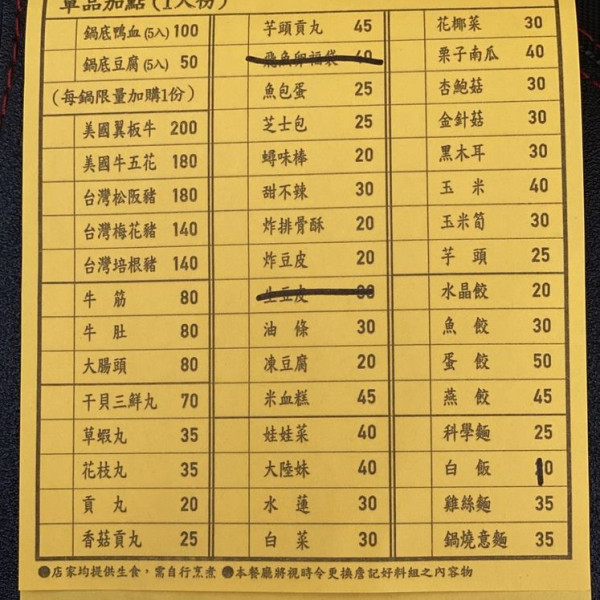 單品加點(1人份)
鍋底鴨血(5入) 100
鍋底豆腐(5入) 50
(每鍋限量加購1份)
美國翼板牛 200
美國牛五花 180
台灣松阪豬 180
台灣梅花豬 140
台灣培根豬 140
牛筋 80
牛肚 80
大腸頭 80
干貝三鮮丸 70
草蝦丸 35
花枝丸 35
貢丸 20
香菇貢丸 25
芋頭貢丸 45
飛魚卵福袋 40
魚包蛋 25
芝士包 25
蟳味棒 20
甜不辣 30
炸排骨酥 20
炸豆皮 20
生豆皮 30
油條 30
凍豆腐 20
米血糕 45
娃娃菜 40
大陸妹 40
水蓮 30
白菜 30
花椰菜 30
栗子南瓜 40
杏鮑菇 30
金針菇 30
黑木耳 30
玉米 40
玉米筍 30
芋頭 25
水晶餃 20
魚餃 30
蛋餃 50
燕餃 45
科學麵 25
白飯 10
雞絲麵 35
鍋燒意麵 35
●店家均提供生食，需自行烹煮 ●本餐廳將視時令更換詹記好料組之內容物